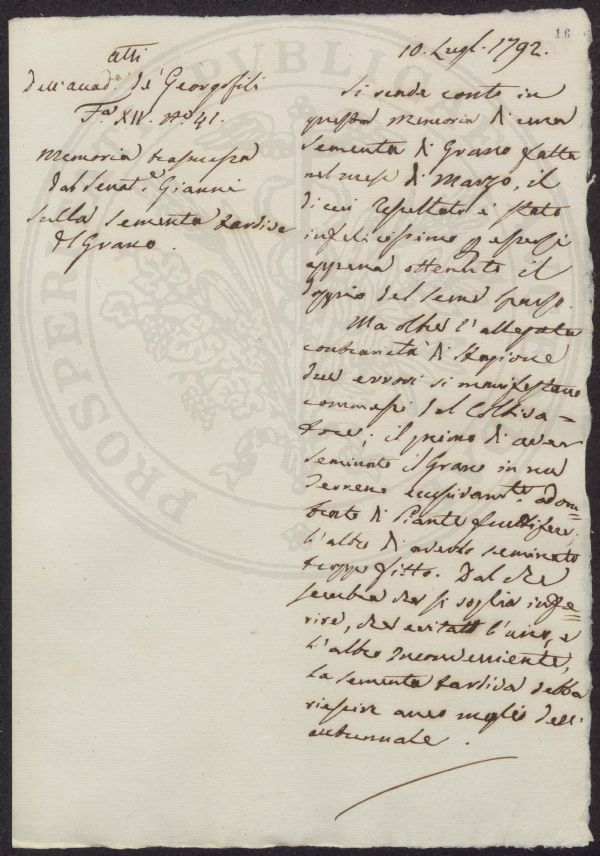 16
atti
dell'accad.a de' Georgofili
F.a XII. N.o 41.
Memoria trasmessa
dal Senat.e Gianni
sulla sementa tardiva
del Grano.
10. Lugl. 1792.
Si rende conto in
questa memoria di una
sementa di Grano fatta
nel mese di Marzo, il
di cui resultato è stato
infelicissimo essersi
appena ottenuto il
doppio del seme sparso.
Ma oltre l'allegata
contrarietà di Stagione
due errori si manifestano
commessi dal Coltiva=
tore; il primo di aver
seminato il Grano in un
terreno eccessivam.te adom=
brato di Piante fruttifere,
l'altro di averlo seminato
troppo fitto. Dal che
sembra che si voglia infe=
rire, che evitato l'uno, e
l'altro inconveniente,
la sementa tardiva debba
riescire anco meglio dell'
autunnale.
PROSPERITATI PUBLICAE